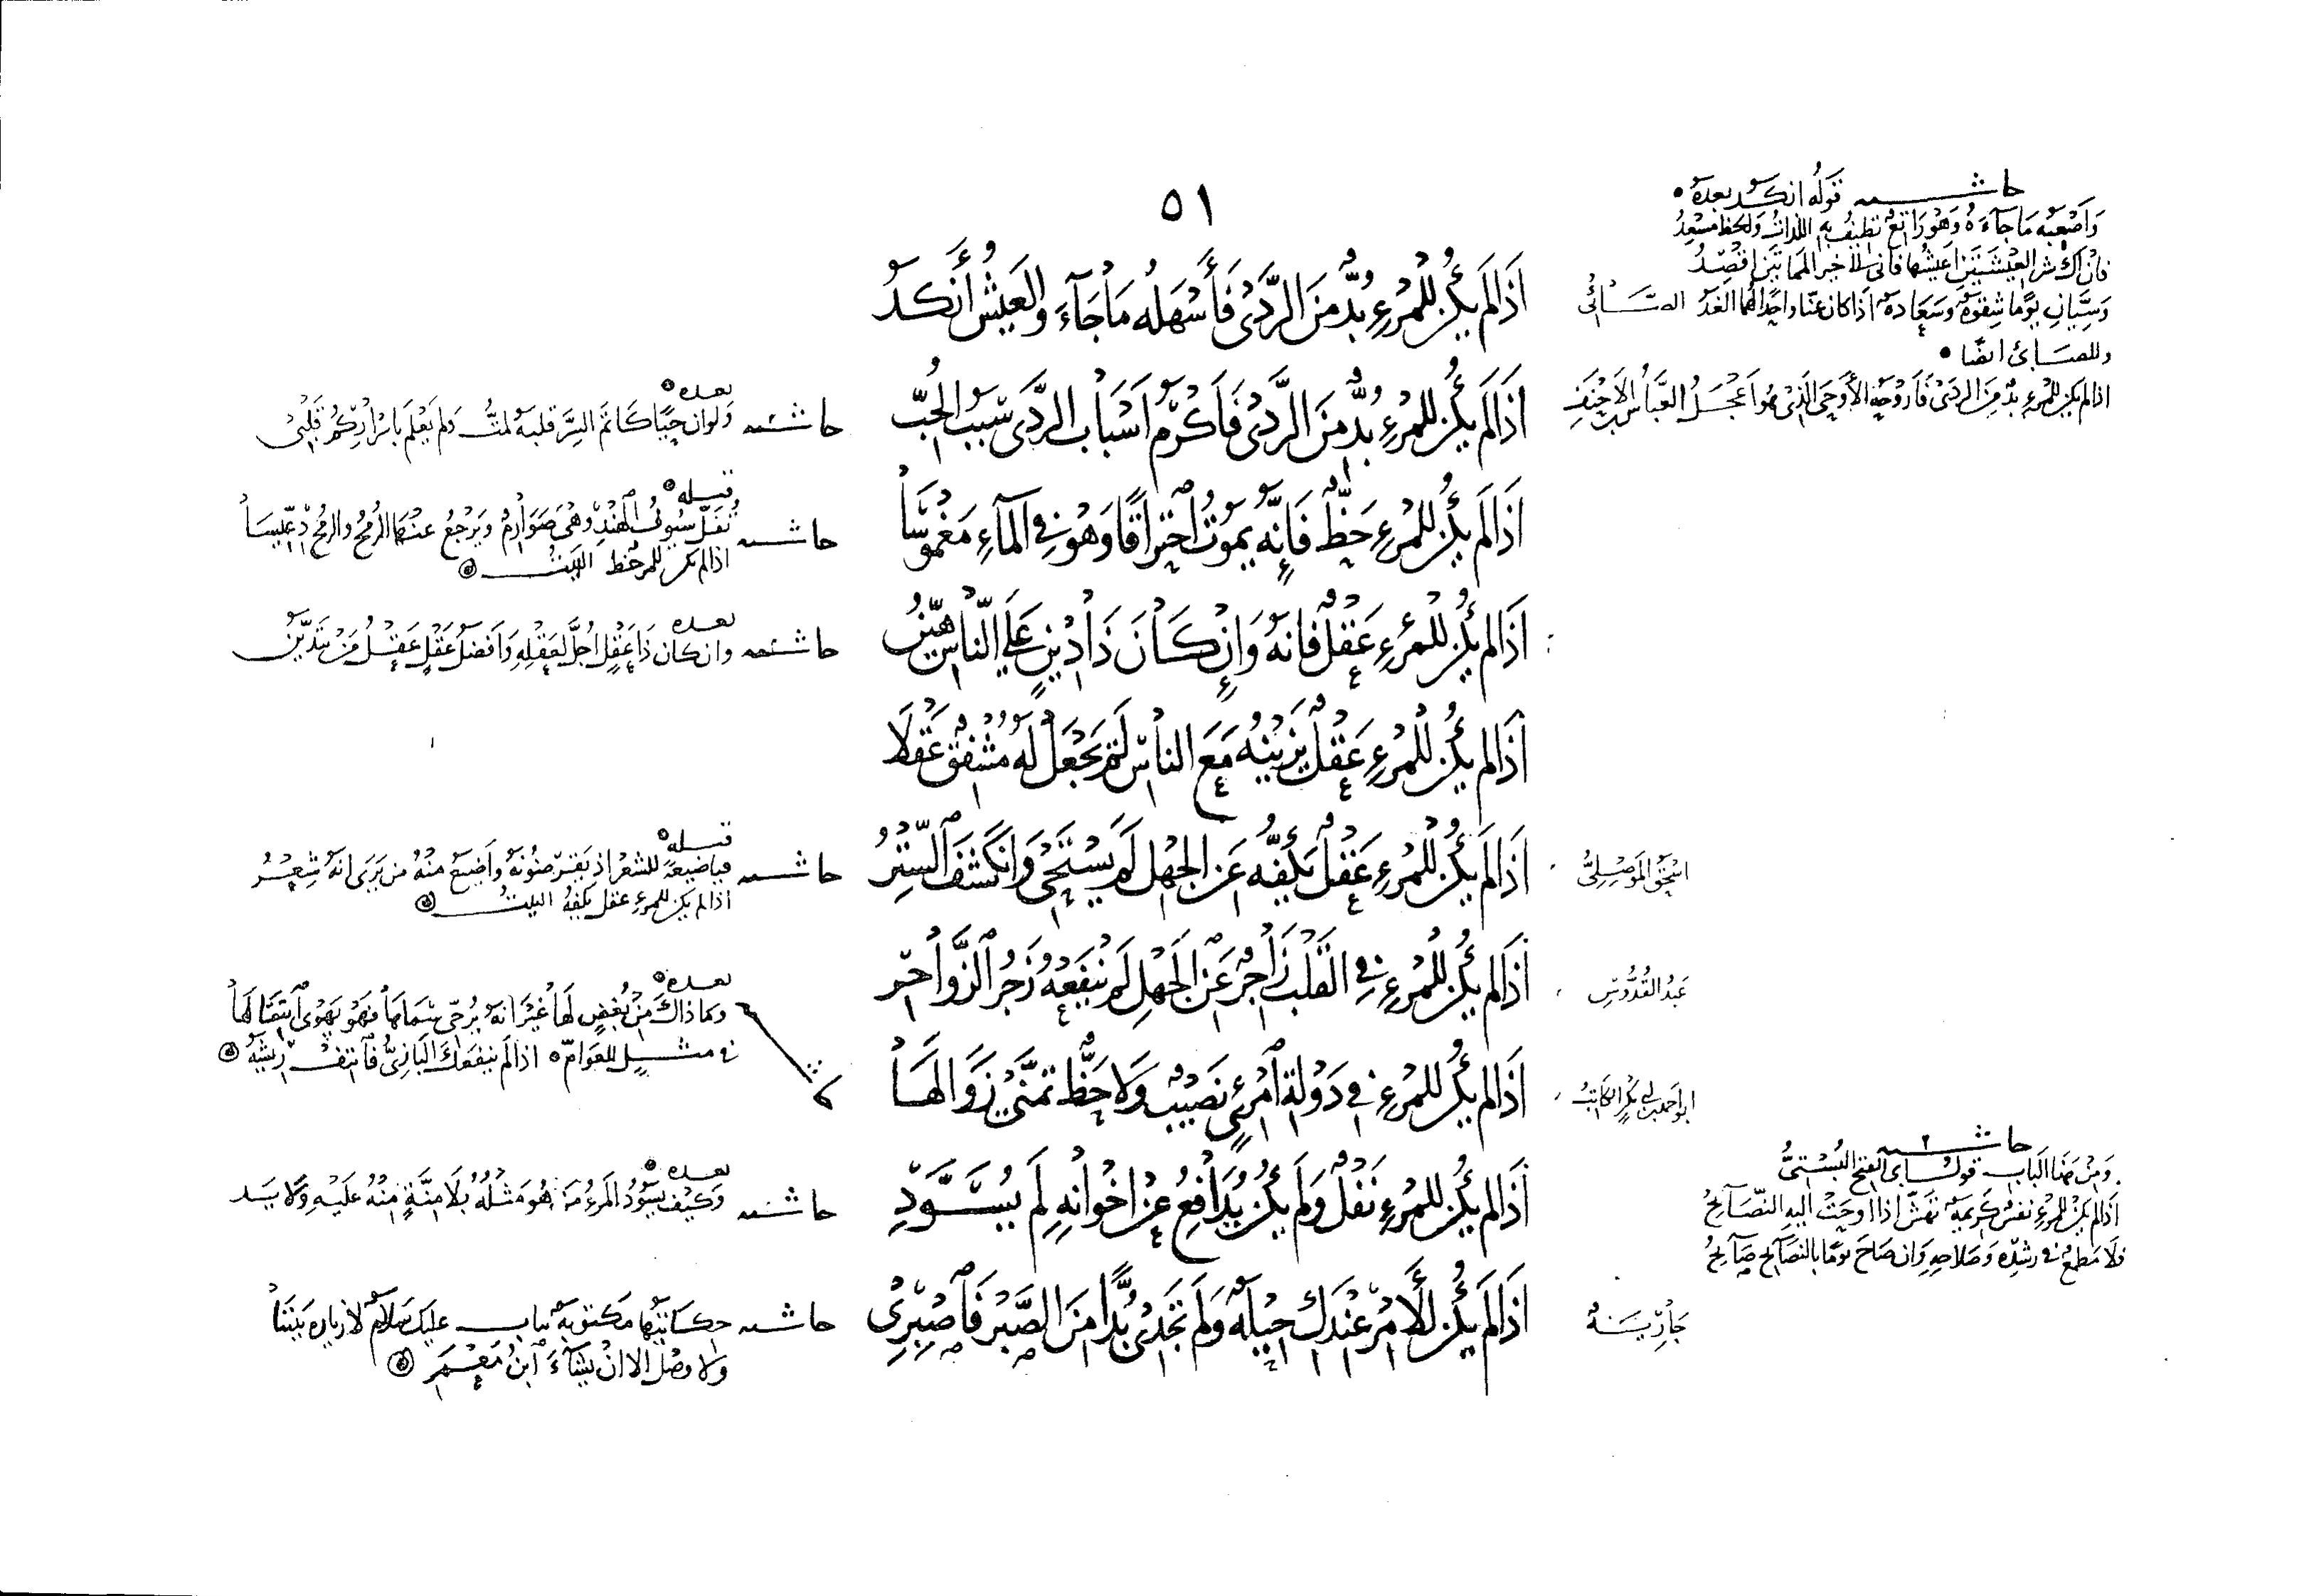 ٥١
حاشية قوله انكد بعده
وَأَصْعَبُه مَا جَآءَهُ وَهْوَ رَاتعٌ تطيفُ بِهِ اللذاتُ والحظ مُسْعِدُ
فان اك شر العيشتين اعيشها فاني الى خير المماتين اقصِدُ
وَسِيّانِ يومًا شِقوةٍ وسَعَادة اذا كان غبّا واحدا لهما الغدُ الصَّابئُ
وللصابئ ايضًا
اذا لم يكن للمرء بدٌّ مِنَ الردَى فَأَروحُه الأوحَى الَّذِى هُوَ أَعْجَلُ العبَّاسُ بن الأحنف
اذَا لَم يكُن لِلمَرْءِ بُدٌّ مِنَ الرَّدَى فَأَسْهَلُه مَا جَآءَ وَالعَيْشُ أَنكَدُ
اذَا لَم يكُن لِلمَرْءِ بُدٌّ مِنَ الرَّدَى فَأَكْرَمُ أَسْبَابِ الرَّدَى سَبَبُ الحُبِّ
حاشية بعده
ولو ان حيًّا كاتم السِّرَّ قلبه لمتُّ ولم يَعْلم باسراركم قلبى
اذَا لَم يكُن لِلمَرْءِ حَظٌّ فَإِنَّه يَموتُ احْتِراقًا وَهْوَ فِى المآءِ مَغْمُوسَا
حاشية قبله
تُفَلُّ سُيوفُ الهِنْدِ وَهْىَ صَوَارِمٌ وَيَرْجعُ عنْهَا الرُمحُ والرمحُ دعّيسَا
اذا لم يكن للمرء حظ البيت
اذَا لَم يكُن لِلمَرْءِ عَقْلٌ فانهُ وَإِن كَانَ ذَا دِينٍ عَلَى النَّاسِ هَيّنُ
حاشية بعده
وان كان ذَا عَقْلٍ اجُلَّ لِعَقْلِهِ وَأَفضَلُ عَقْلٍ عَقْلُ مَنْ يَتَدَيَّنُ
اذَا لَم يكُن لِلمَرْءِ عَقْلٌ يَزِينُهُ مَعَ الناسِ لَم يَجْعَلْ لَهُ مُشْفِقٌ عَقْلا
اسْحقُ المَوصِلِىُّ
اذَا لَم يكُن لِلمَرْءِ عَقْلٌ يَكُفُّه عَنِ الجَهْلِ لَم يَسْتَحْيِ وَانْكَشَفَ السِّتْرُ
حاشية قبله
فيا ضيعةً للشعر اذ يقترضونَهُ وأضيع منْهُ من يَرَى انه شِعْرُ
اذا لم يكن للمرء عقل يكفه البيت
عَبدُ القُدُّوسِ
اذَا لَم يكُن لِلمَرْءِ فِى القَلْبِ زَاجِرٌ عَنِ الجَهْلِ لَم يَنْفَعْهُ زَجْرُ الزَّوَاجِرِ
ابو احمد بن ابى بكر الكاتبُ
اذَا لَم يكُن لِلمَرْءِ فِى دَوْلَةِ امْرِئٍ نَصِيبٌ وَلا حَظٌّ تَمَنَّى زَوَالَهَا
بعده
وما ذاك مِنْ بُغْضٍ لَهَا غَيْرَ انَّهُ يُرَجّى سِوَاهَا فَهْوَ يَهْوَى انْتِقَالَهَا
فى مثل للعوامّ اذا لَم ينفعك البَازِىُّ فانتف ريشَهُ
اذَا لَم يكُن لِلمَرْءِ فَضْلٌ وَلَم يكُن يُدَافِعُ عَنْ إِخْوَانِهِ لَم يُسَوَّدِ
حاشية بعده
وَكَيْفَ يسودُ المرءُ مَن هُوَ مثلُهُ بِلَا مِنَّةٍ مِنْهُ عَلَيْهِ وَلَا يَدِ
حاشية
وَمِنْ هَذَا البَابِ قول ابى الفتح البُستِىُّ
اذَا لم يكن للمرء نفسٌ كريمة تهشّ اذا اوحَتْ اليهِ النّصَآئِحُ
فلا مَطمعٌ فى رشدِه وَصَلاحِهِ وَان صَاحَ يومًا بالنصَائحِ صَآئِحُ
جَارِيَةٌ
اذَا لَم يكُن لِلأَمْرِ عِنْدَكِ حِيلَةٌ وَلَم تَجِدِى بُدًّا مِنَ الصَّبْرِ فَاصْبِرِى
حاشية حكايتها مكتوبة بباب عليك سلامٌ لا زيارة بيننا
ولا وصْل الا ان يشآءَ ابْنُ مَعْمَرِ